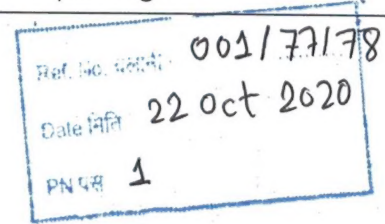 Ref. No. प.सं./मि. 001/77/78
Date मिति 22 Oct 2020
PN पृष्ठ 1